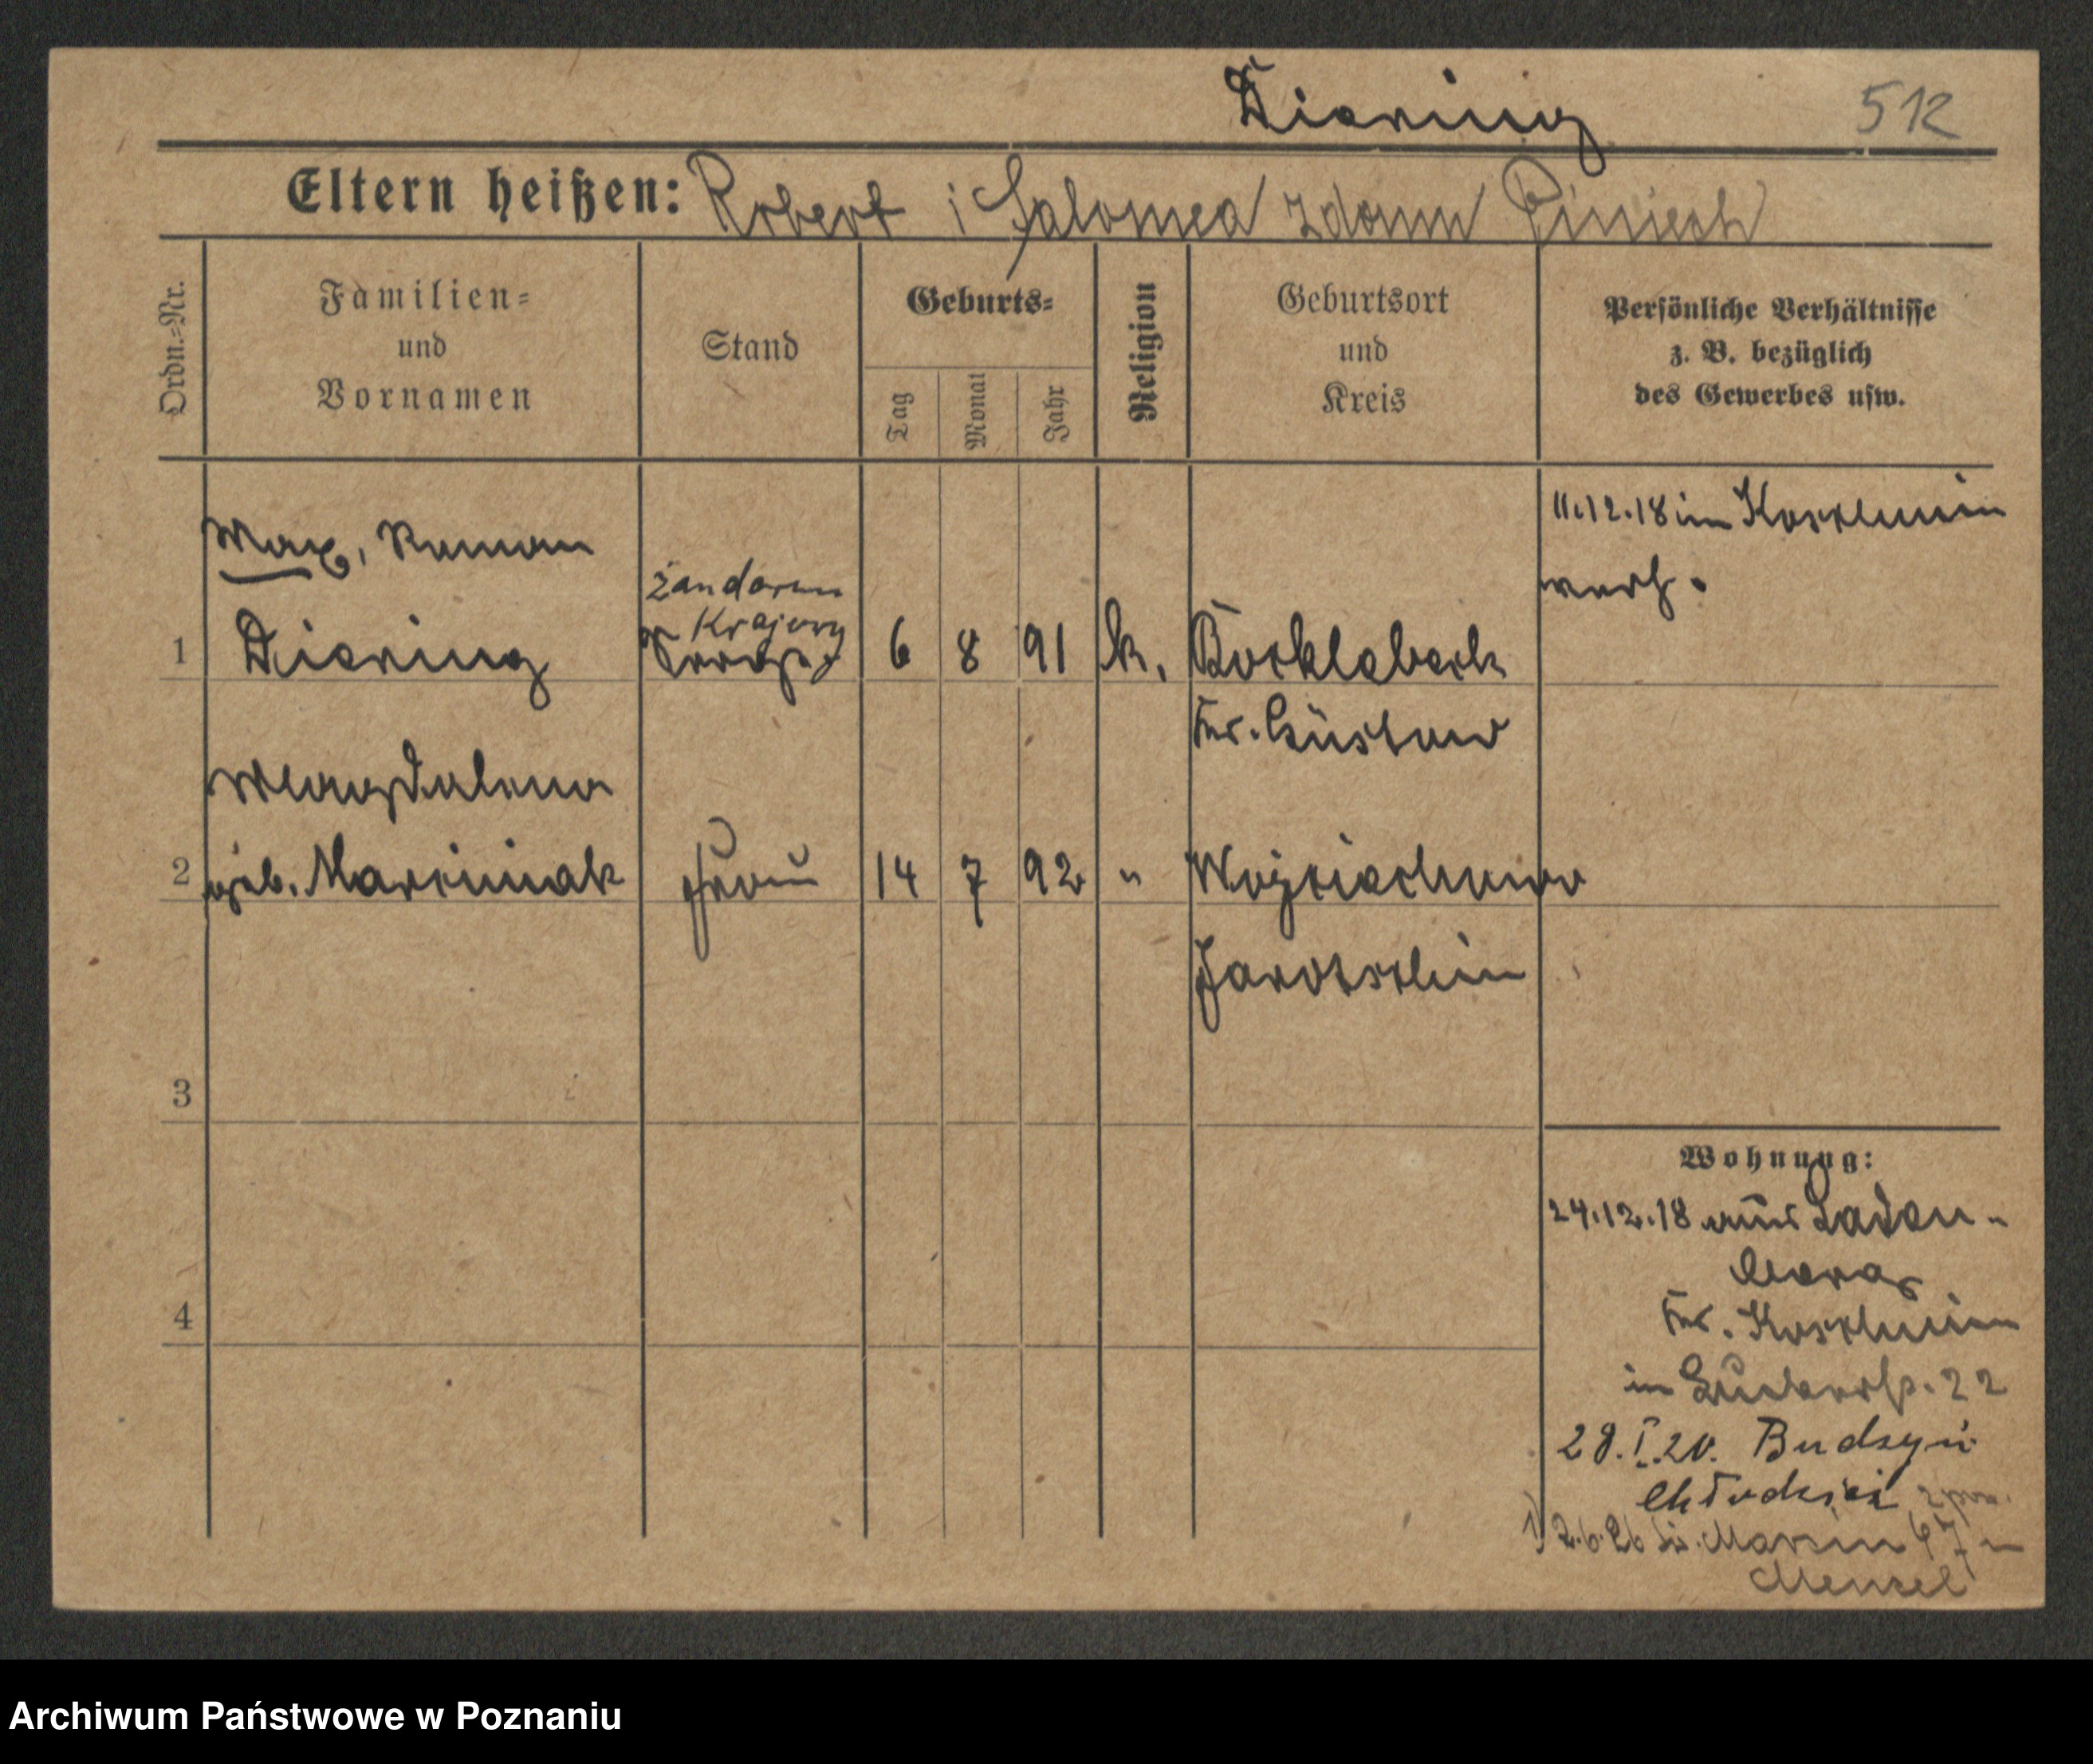 Diering 512
Eltern heißen: Robert i Salomea z domu
Ordn.-Nr.
Familien-
und
Vornamen
Stand
Geburts-
Tag
Monat
Jahr
Religion
Geburtsort
und
Kreis
Persönliche Verhältnisse
z. B. bezüglich
des Gewerbes usw.
11.12.18 in Koschmin
verh.
Max, Roman
żandarm
Krajowy
1 Diering 6 8 91 k.
Kr. Güstow
Magdalena
2 geb. Marciniak Frau 14 7 92 "
Jarotschin
3
Wohnung:
24.12.18 aus
4
Kr. Koschmin
in 22
28.I.20. Budzyń
2.6.26 Św. Marcin 67 u
Menzel
Archiwum Państwowe w Poznaniu